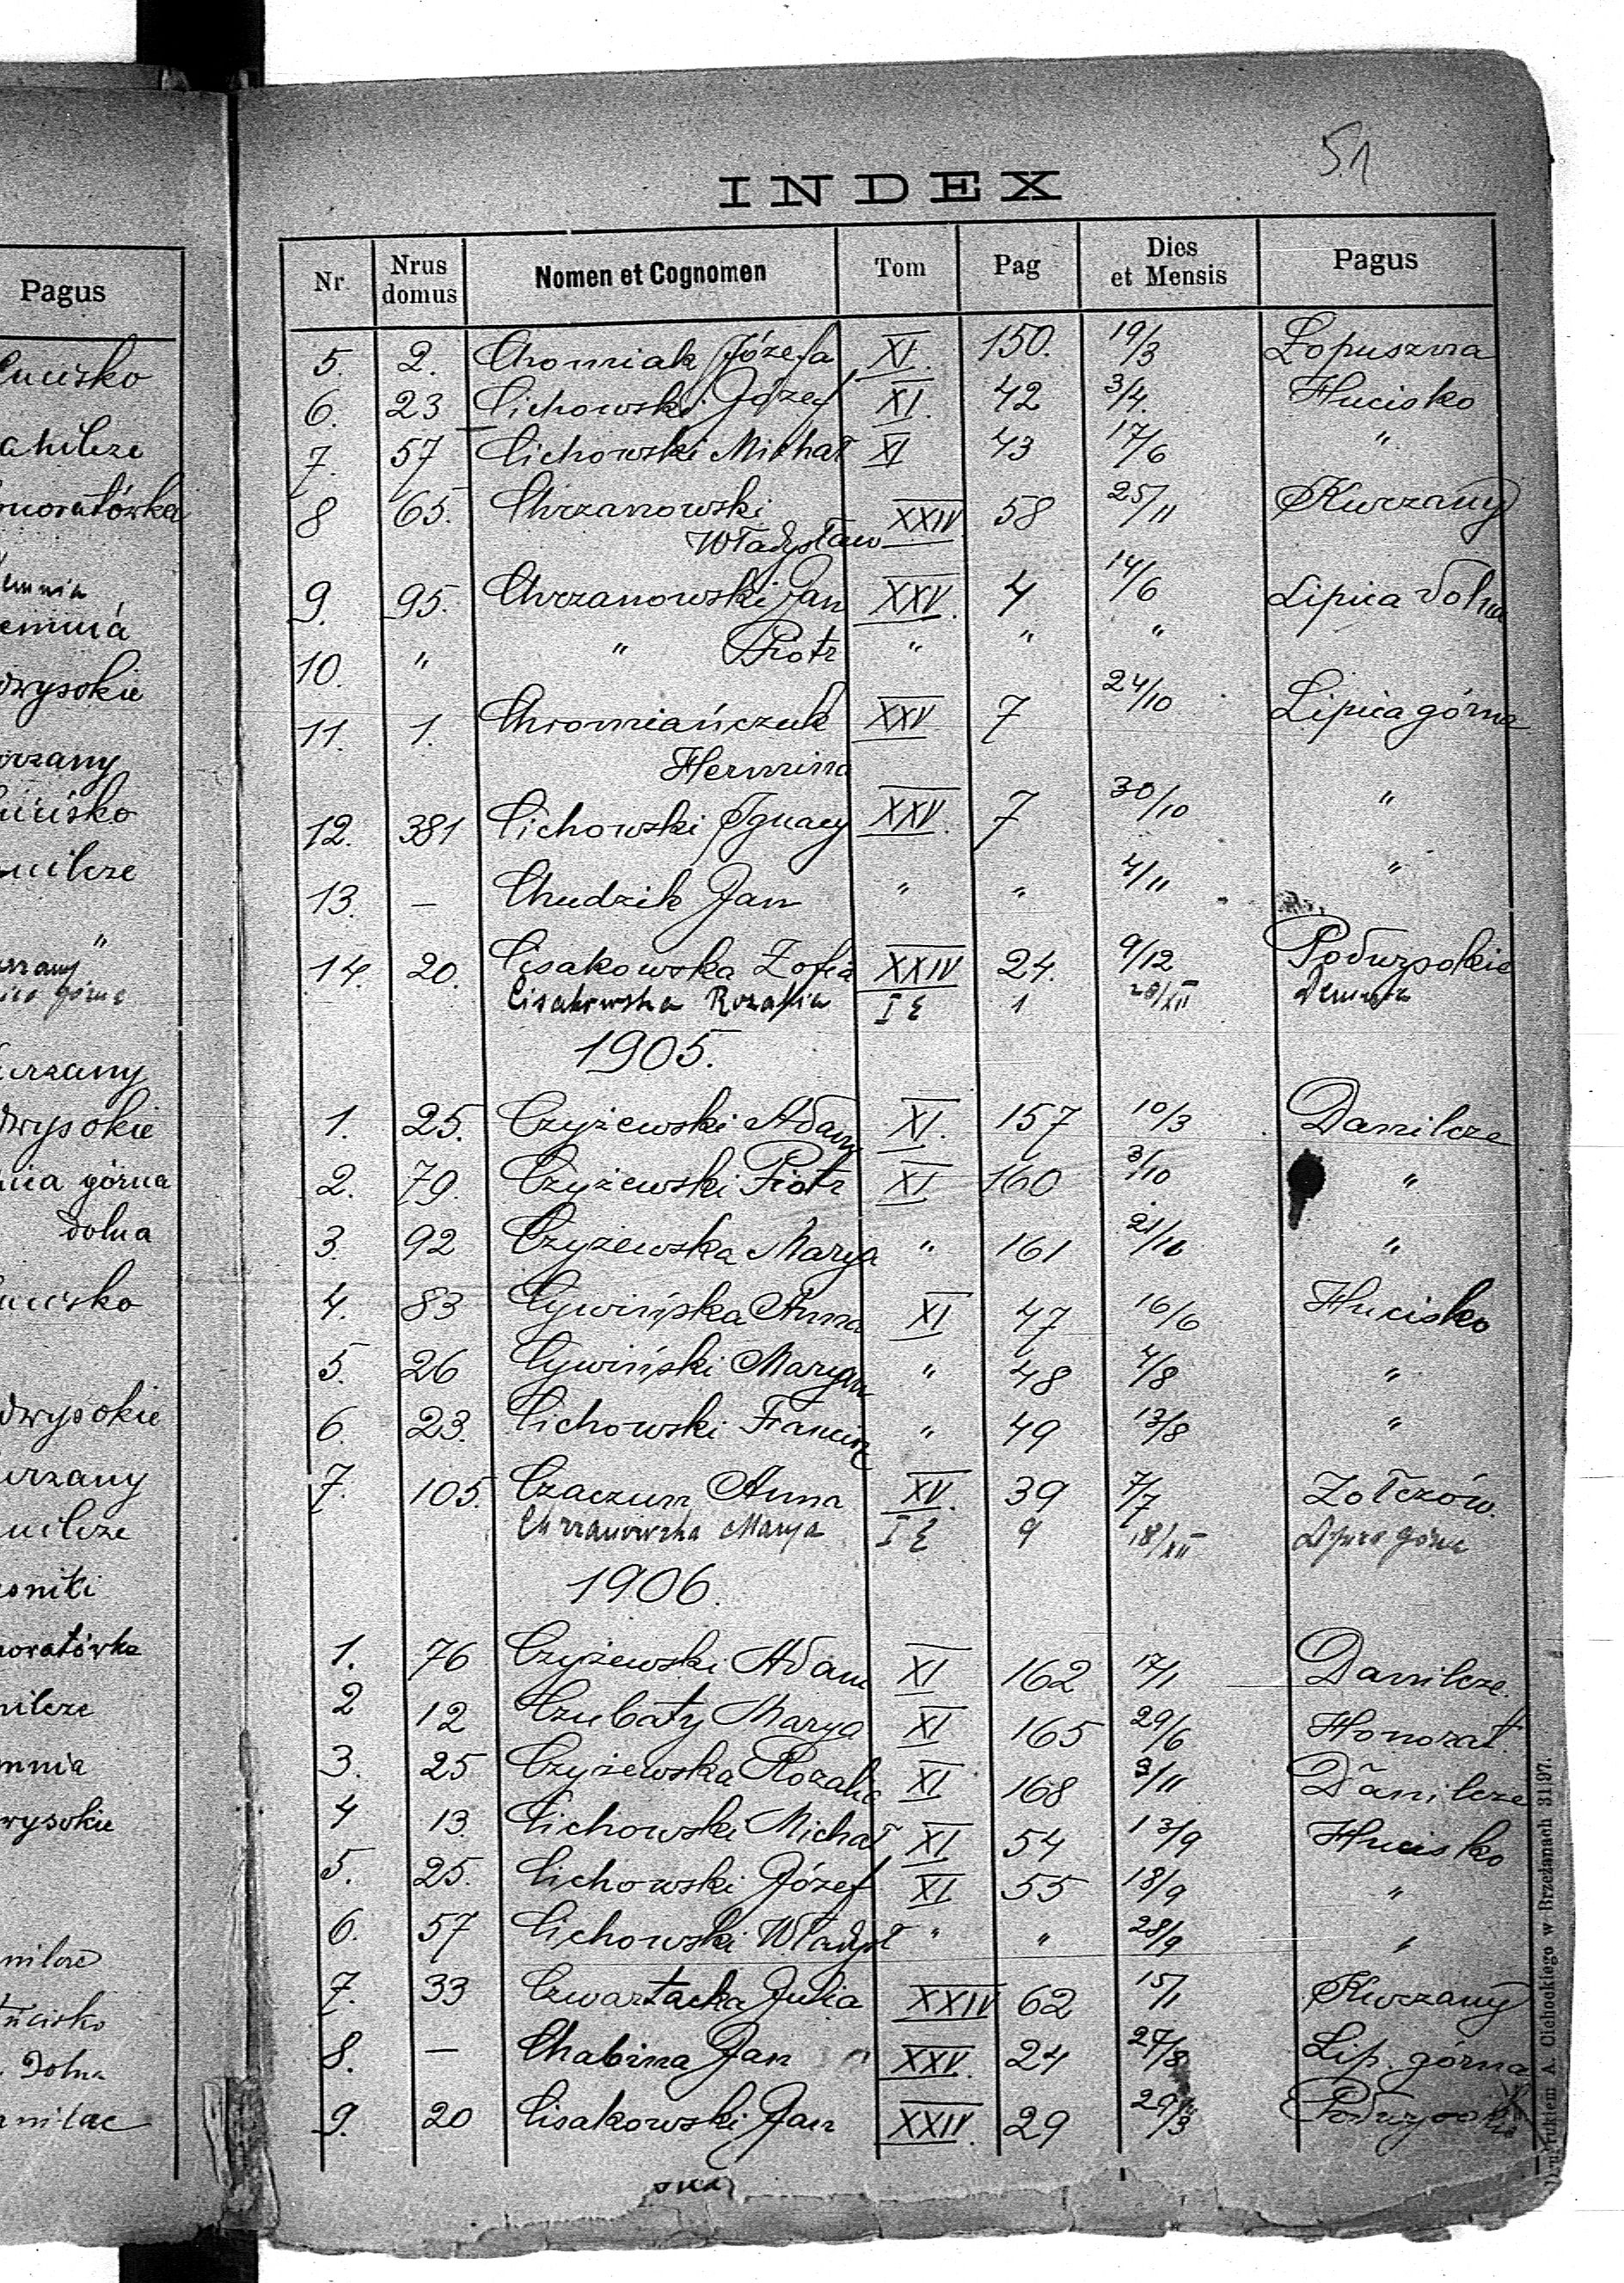 51
INDEX
Pagus
Nr Nrus domus Nomen et Cognomen Tom Pag Dies et Mensis Pagus
5. 2. Chomiak Józefa XI. 150. 19/3 Łopuszna
6. 23 Cichowski Józef XI. 42 3/4. Hucisko
7. 57 Cichowski Michał XI 43 17/6 "
8 65. Chrzanowski XXIV 58 25/11 Kurzany
Władysław
9. 95. Chrzanowski Jan XXV. 4 14/6 Lipica dolna
10. " " Piotr " " "
11. 1. Chromiańczuk XXV 7 24/10 Lipica górna
Hermina
12. 381 Cichowski Ignacy XXV. 7 30/10 "
13. — Chudzik Jan " " 4/11 "
14. 20. Cisakowska Zofia XXIV 24. 9/12 Podwysokie
Cisakowska Rozalia I E 1 28/XII Demnia
1905.
1. 25. Czyżewski Adam XI. 157 10/3 Danilcze
2. 79. Czyżewski Piotr XI 160 3/10 "
3. 92 Czyżewska Marya " 161 21/10 "
4. 83 Cywińska Anna XI 47 16/6 Hucisko
5. 26 Cywiński Maryan " 48 4/8 "
6. 23. Cichowski Francisz " 49 13/8 "
7. 105. Czaczun Anna XV. 39 7/7 Zołczów.
Chrzanowska Marya I E 9 18/XII Lipica górna
1906.
1. 76 Czyżewski Adam XI 162 17/1 Danilcze.
2 12 Czubaty Marya XI 165 29/6 Honorat.
3. 25 Czyżewska Rozalia XI 168 3/11 Danilcze
4 13. Cichowski Michał XI 54 13/9 Hucisko
5. 25. Cichowski Józef XI 55 18/9 "
6. 57 Cichowski Władysł " " 28/9 "
7. 33 Czwartacka Julia XXIV 62 15/1 Kurzany
8. — Chabina Jan XXV. 24 27/8 Lip. górna
9. 20 Cisakowski Jan XXIV. 29 29/3 Podwysokie
ska
Drukiem A. Cichockiego w Brzeżanach 31|97.